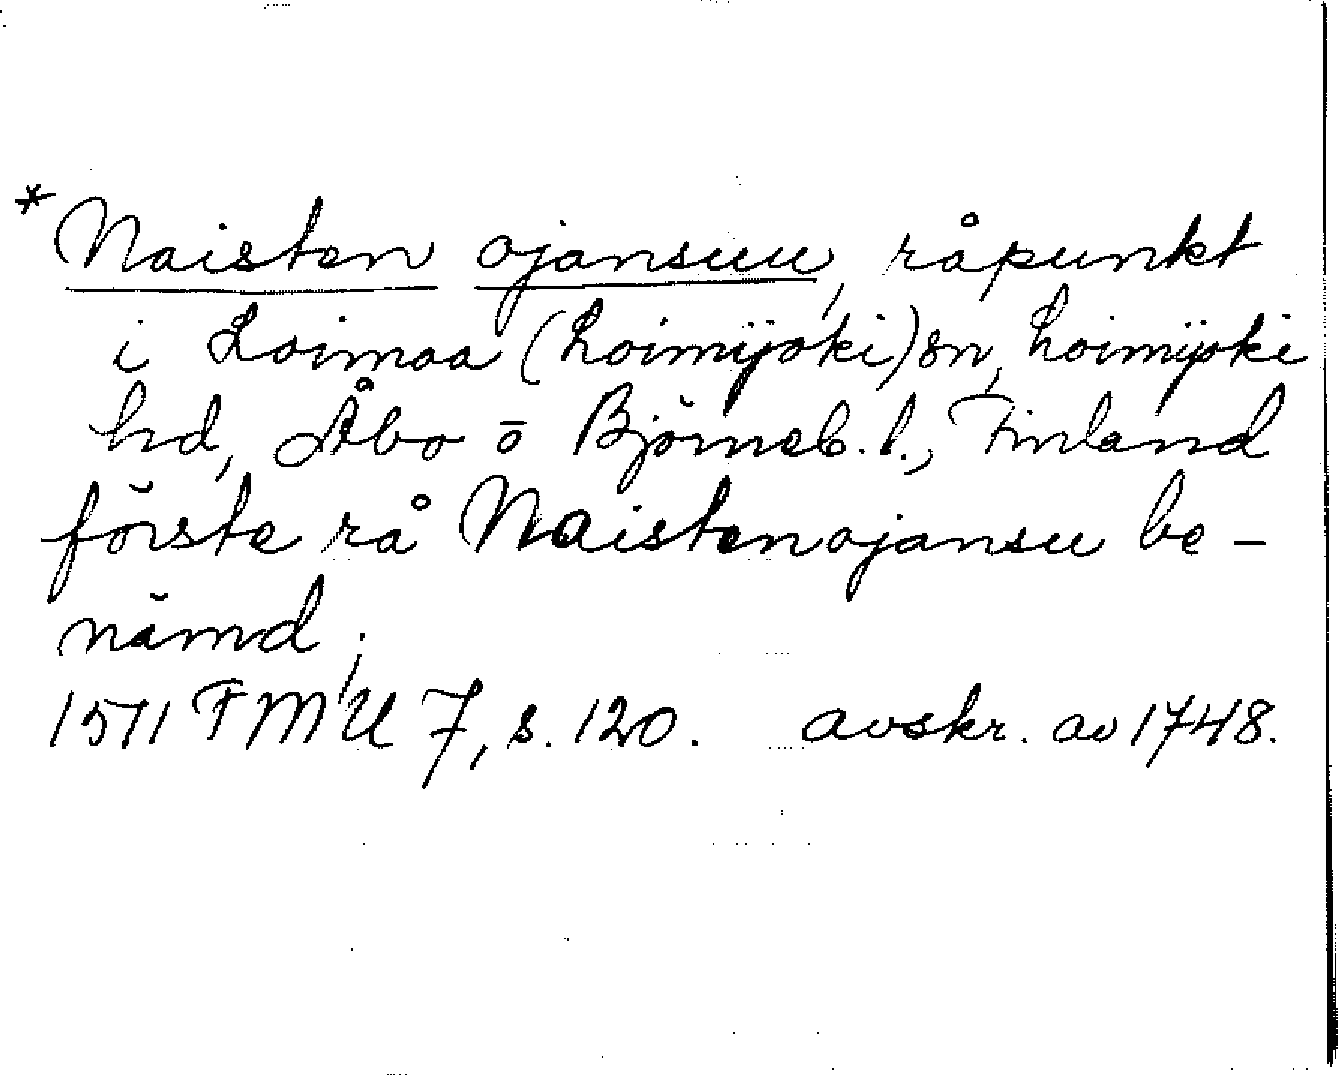 *Naisten ojansuu, råpunkt
i Loimaa (Loimijoki) sn, Loimijoki
hd, Åbo o Björneb. l., Finland
förste rå Naistenojansu be-
nämd;
1571 FMU 7, s. 120. avskr. av 1748.